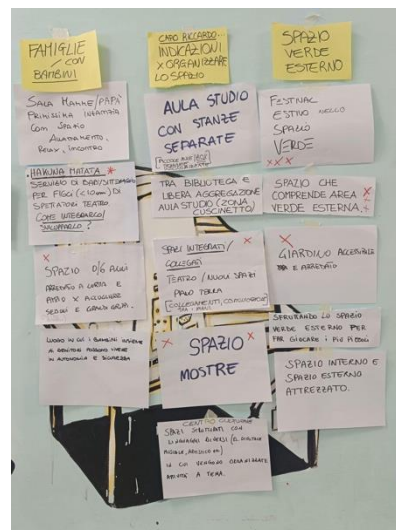 FAMIGLIE
CON
BAMBINI
SALA MAMME/PAPÀ
PRIMISSIMA INFANZIA
CON SPAZIO
ALLATTAMENTO,
RELAX, INCONTRO
HAKUNA MATATA
SERVIZIO DI BABY SITTERAGGIO
PER FIGLI (<10 anni) DI
SPETTATORI TEATRO
COME INTEGRARLO/
SVILUPPARLO?
SPAZIO 0/6 ANNI
ARREDATO A
AMPIO X ACCOGLIERE
LUOGO IN CUI I BAMBINI INSIEME
AI GENITORI POSSONO VIVERE
IN AUTONOMIA E SICUREZZA
CARO RICCARDO...
INDICAZIONI
X ORGANIZZARE
LO SPAZIO
AULA STUDIO
CON STANZE
SEPARATE
TRA BIBLIOTECA E
LIBERA AGGREGAZIONE
AULA STUDIO (ZONA
CUSCINETTO)
SPAZI INTEGRATI/
COLLEGATI
TEATRO / NUOVI SPAZI
PIANO TERRA
SPAZIO
MOSTRE
CENTRO CULTURALE
SPAZI STRUTTURATI CON
LINGUAGGI DIVERSI
IN CUI VENGONO ORGANIZZATE
A TEMA.
SPAZIO
VERDE
ESTERNO
FESTIVAL
ESTIVO NELLO
SPAZIO
VERDE
SPAZIO CHE
COMPRENDE AREA
VERDE ESTERNA.
GIARDINO ACCESSIBILE
E ARREDATO
SFRUTTANDO LO SPAZIO
VERDE ESTERNO PER
FAR GIOCARE I PIÙ PICCOLI
SPAZIO INTERNO E
SPAZIO ESTERNO
ATTREZZATO.